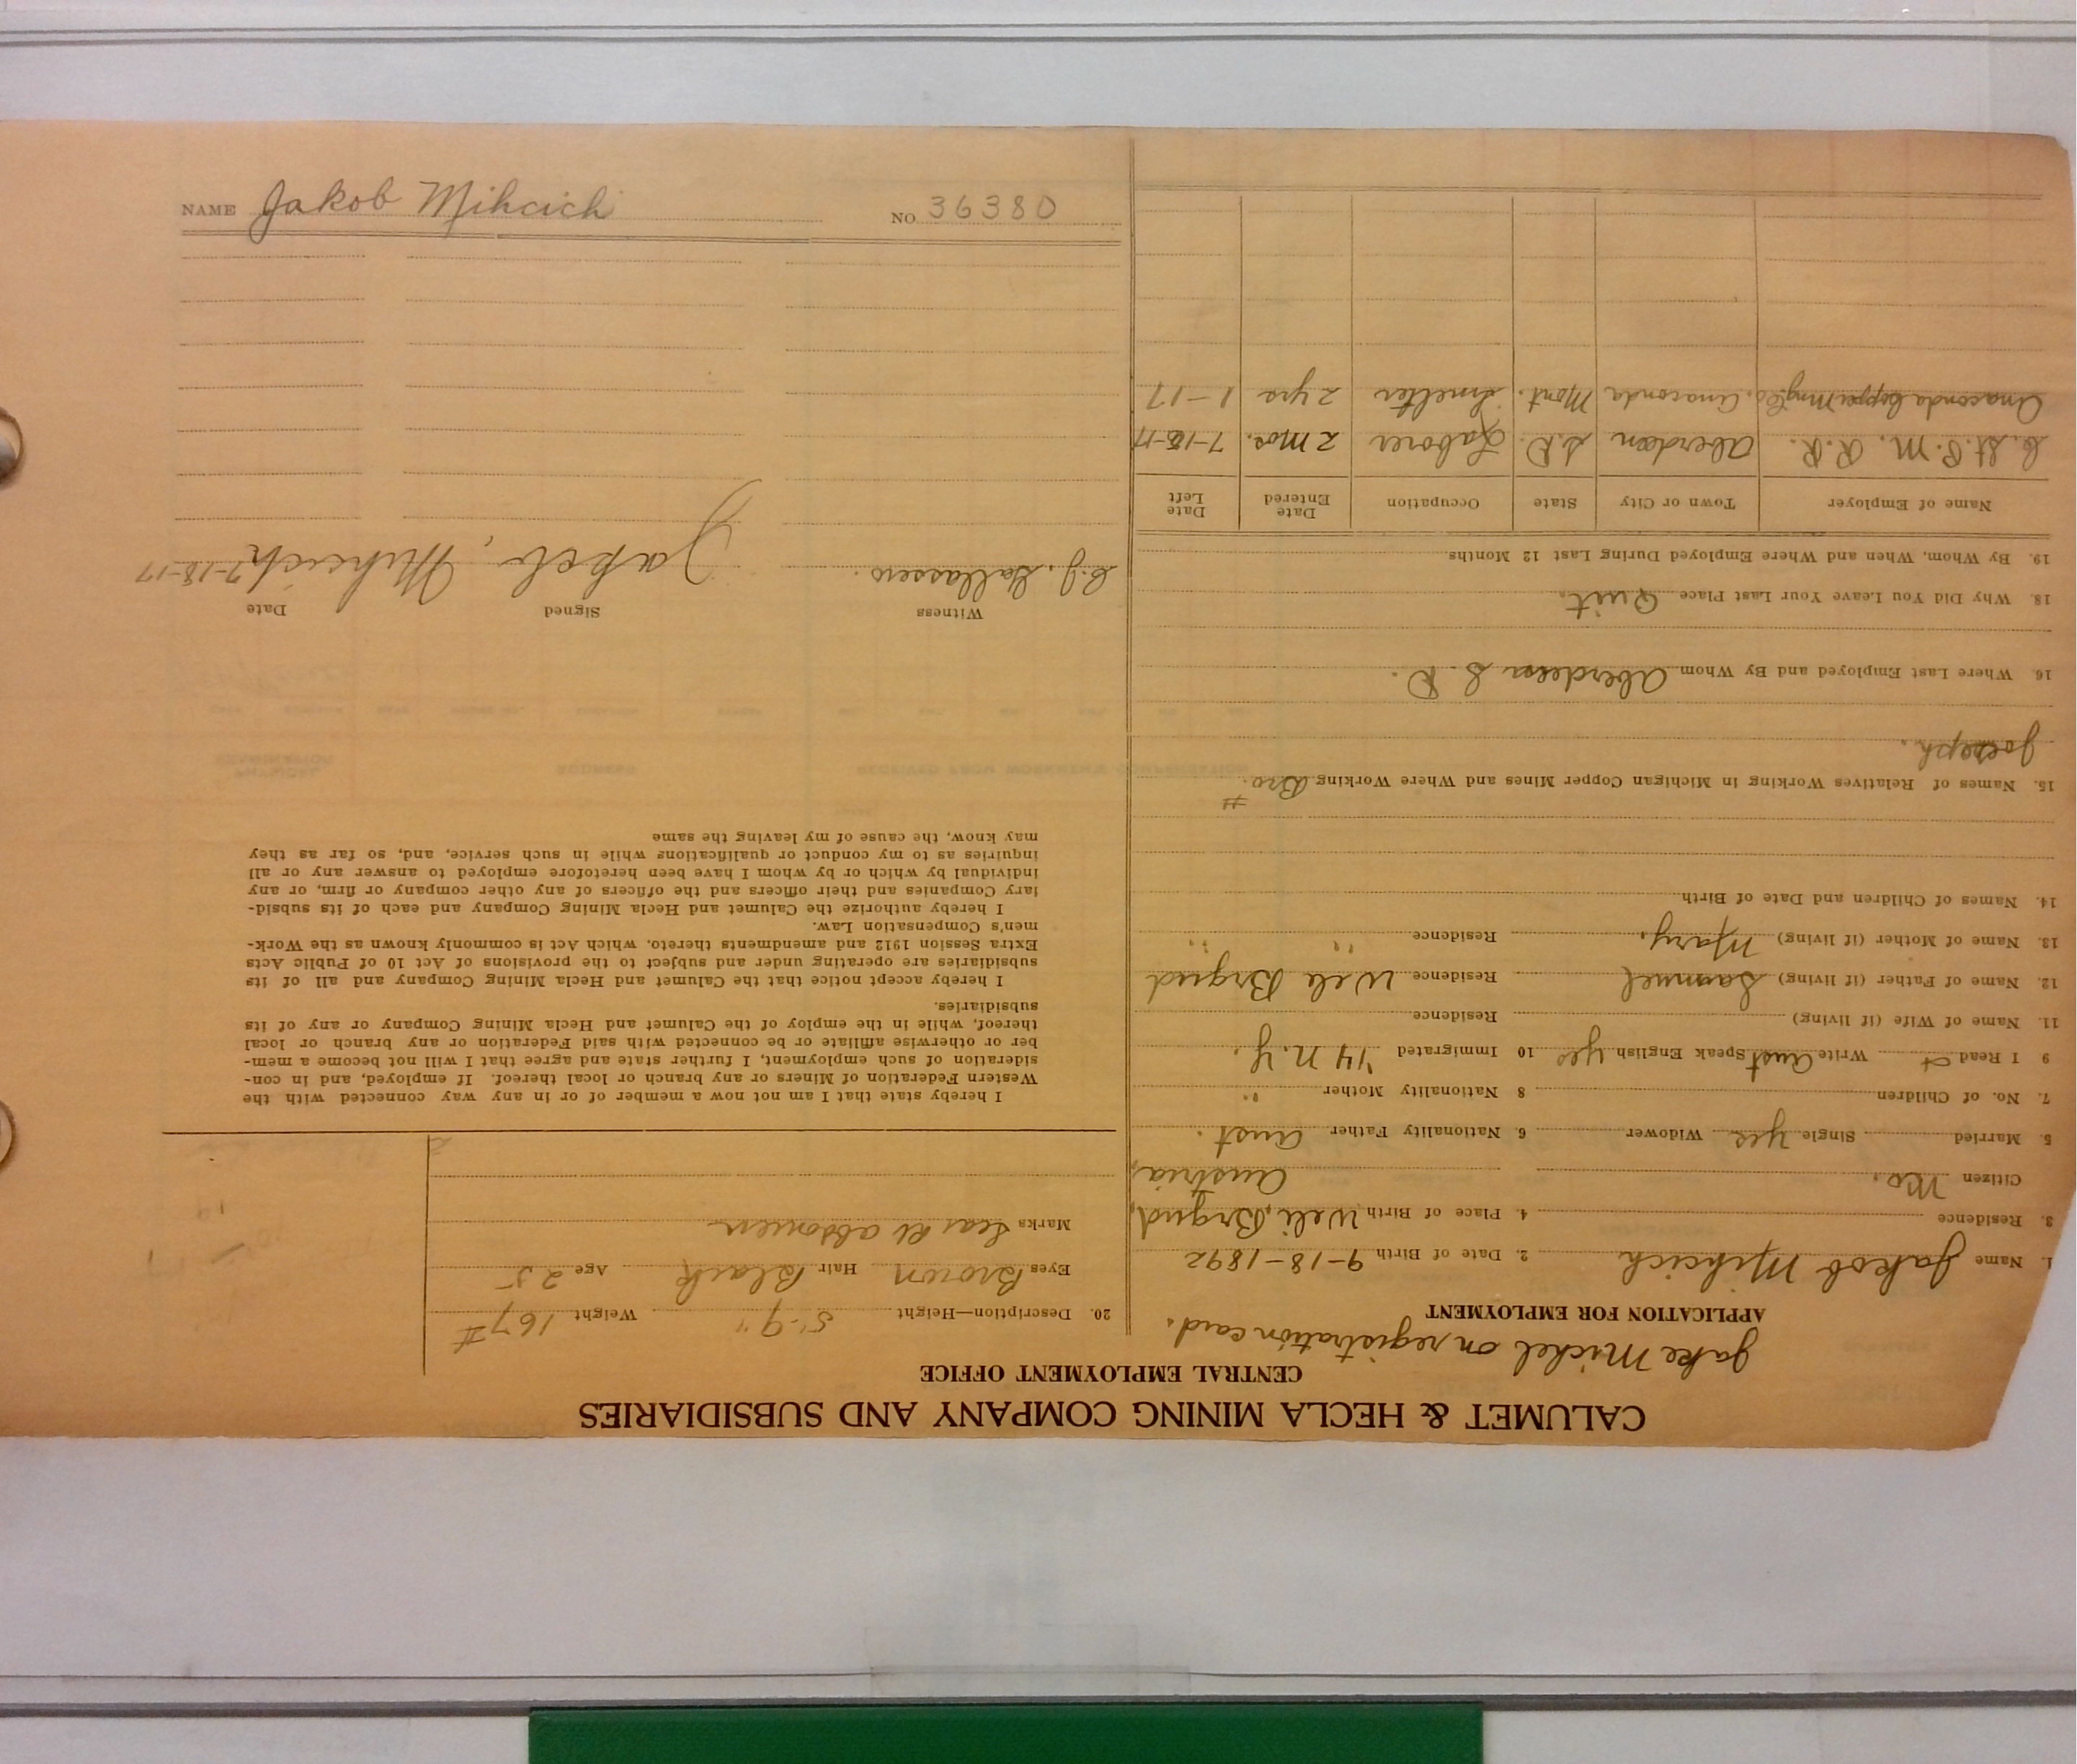 CALUMET & HECLA MINING COMPANY AND SUBSIDIARIES
CENTRAL EMPLOYMENT OFFICE
Jake Michel on registration card.
APPLICATION FOR EMPLOYMENT
1. Name Jakob Mihcich 2. Date of Birth 9-18-1892
3. Residence 4. Place of Birth Weli, Brgud,
Citizen No. Austria,
5. Married Single Yes Widower 6. Nationality Father Aust.
7. No. of Children 8 Nationality Mother "
9 I Read & Write Aust Speak English Yes 10 Immigrated '14 N.Y.
11. Name of Wife (if living) Residence
12. Name of Father (if living) Samuel Residence Weli Brgud
13. Name of Mother (if living) Mary. Residence " "
14. Names of Children and Date of Birth
15. Names of Relatives Working in Michigan Copper Mines and Where Working Bro. #
Joseph.
16 Where Last Employed and By Whom Aberdeen S. D.
18. Why Did You Leave Your Last Place Quit.
19. By Whom, When and Where Employed During Last 12 Months
Name of Employer Town or City State Occupation Date Entered Date Left
C. St. P. M. R. R. Aberdeen S.D. Laborer 2 mos. 7-15-17
Anaconda Copper Mng Co. Anaconda Mont. Smelter 2 yrs 1-17
20. Description—Height 5'-9" Weight 167#
Eyes Brown Hair Black Age 25
Marks Scar Rt abdomen
I hereby state that I am not now a member of or in any way connected with the
Western Federation of Miners or any branch or local thereof. If employed, and in con-
sideration of such employment, I further state and agree that I will not become a mem-
ber or otherwise affiliate or be connected with said Federation or any branch or local
thereof, while in the employ of the Calumet and Hecla Mining Company or any of its
subsidiaries.
I hereby accept notice that the Calumet and Hecla Mining Company and all of its
subsidiaries are operating under and subject to the provisions of Act 10 of Public Acts
Extra Session 1912 and amendments thereto, which Act is commonly known as the Work-
men's Compensation Law.
I hereby authorize the Calumet and Hecla Mining Company and each of its subsid-
iary Companies and their officers and the officers of any other company or firm, or any
individual by which or by whom I have been heretofore employed to answer any or all
inquiries as to my conduct or qualifications while in such service, and, so far as they
may know, the cause of my leaving the same
Witness Signed Date
C.J. Jakob, Mihcich 7-18-17
NAME Jakob Mihcich NO. 36380